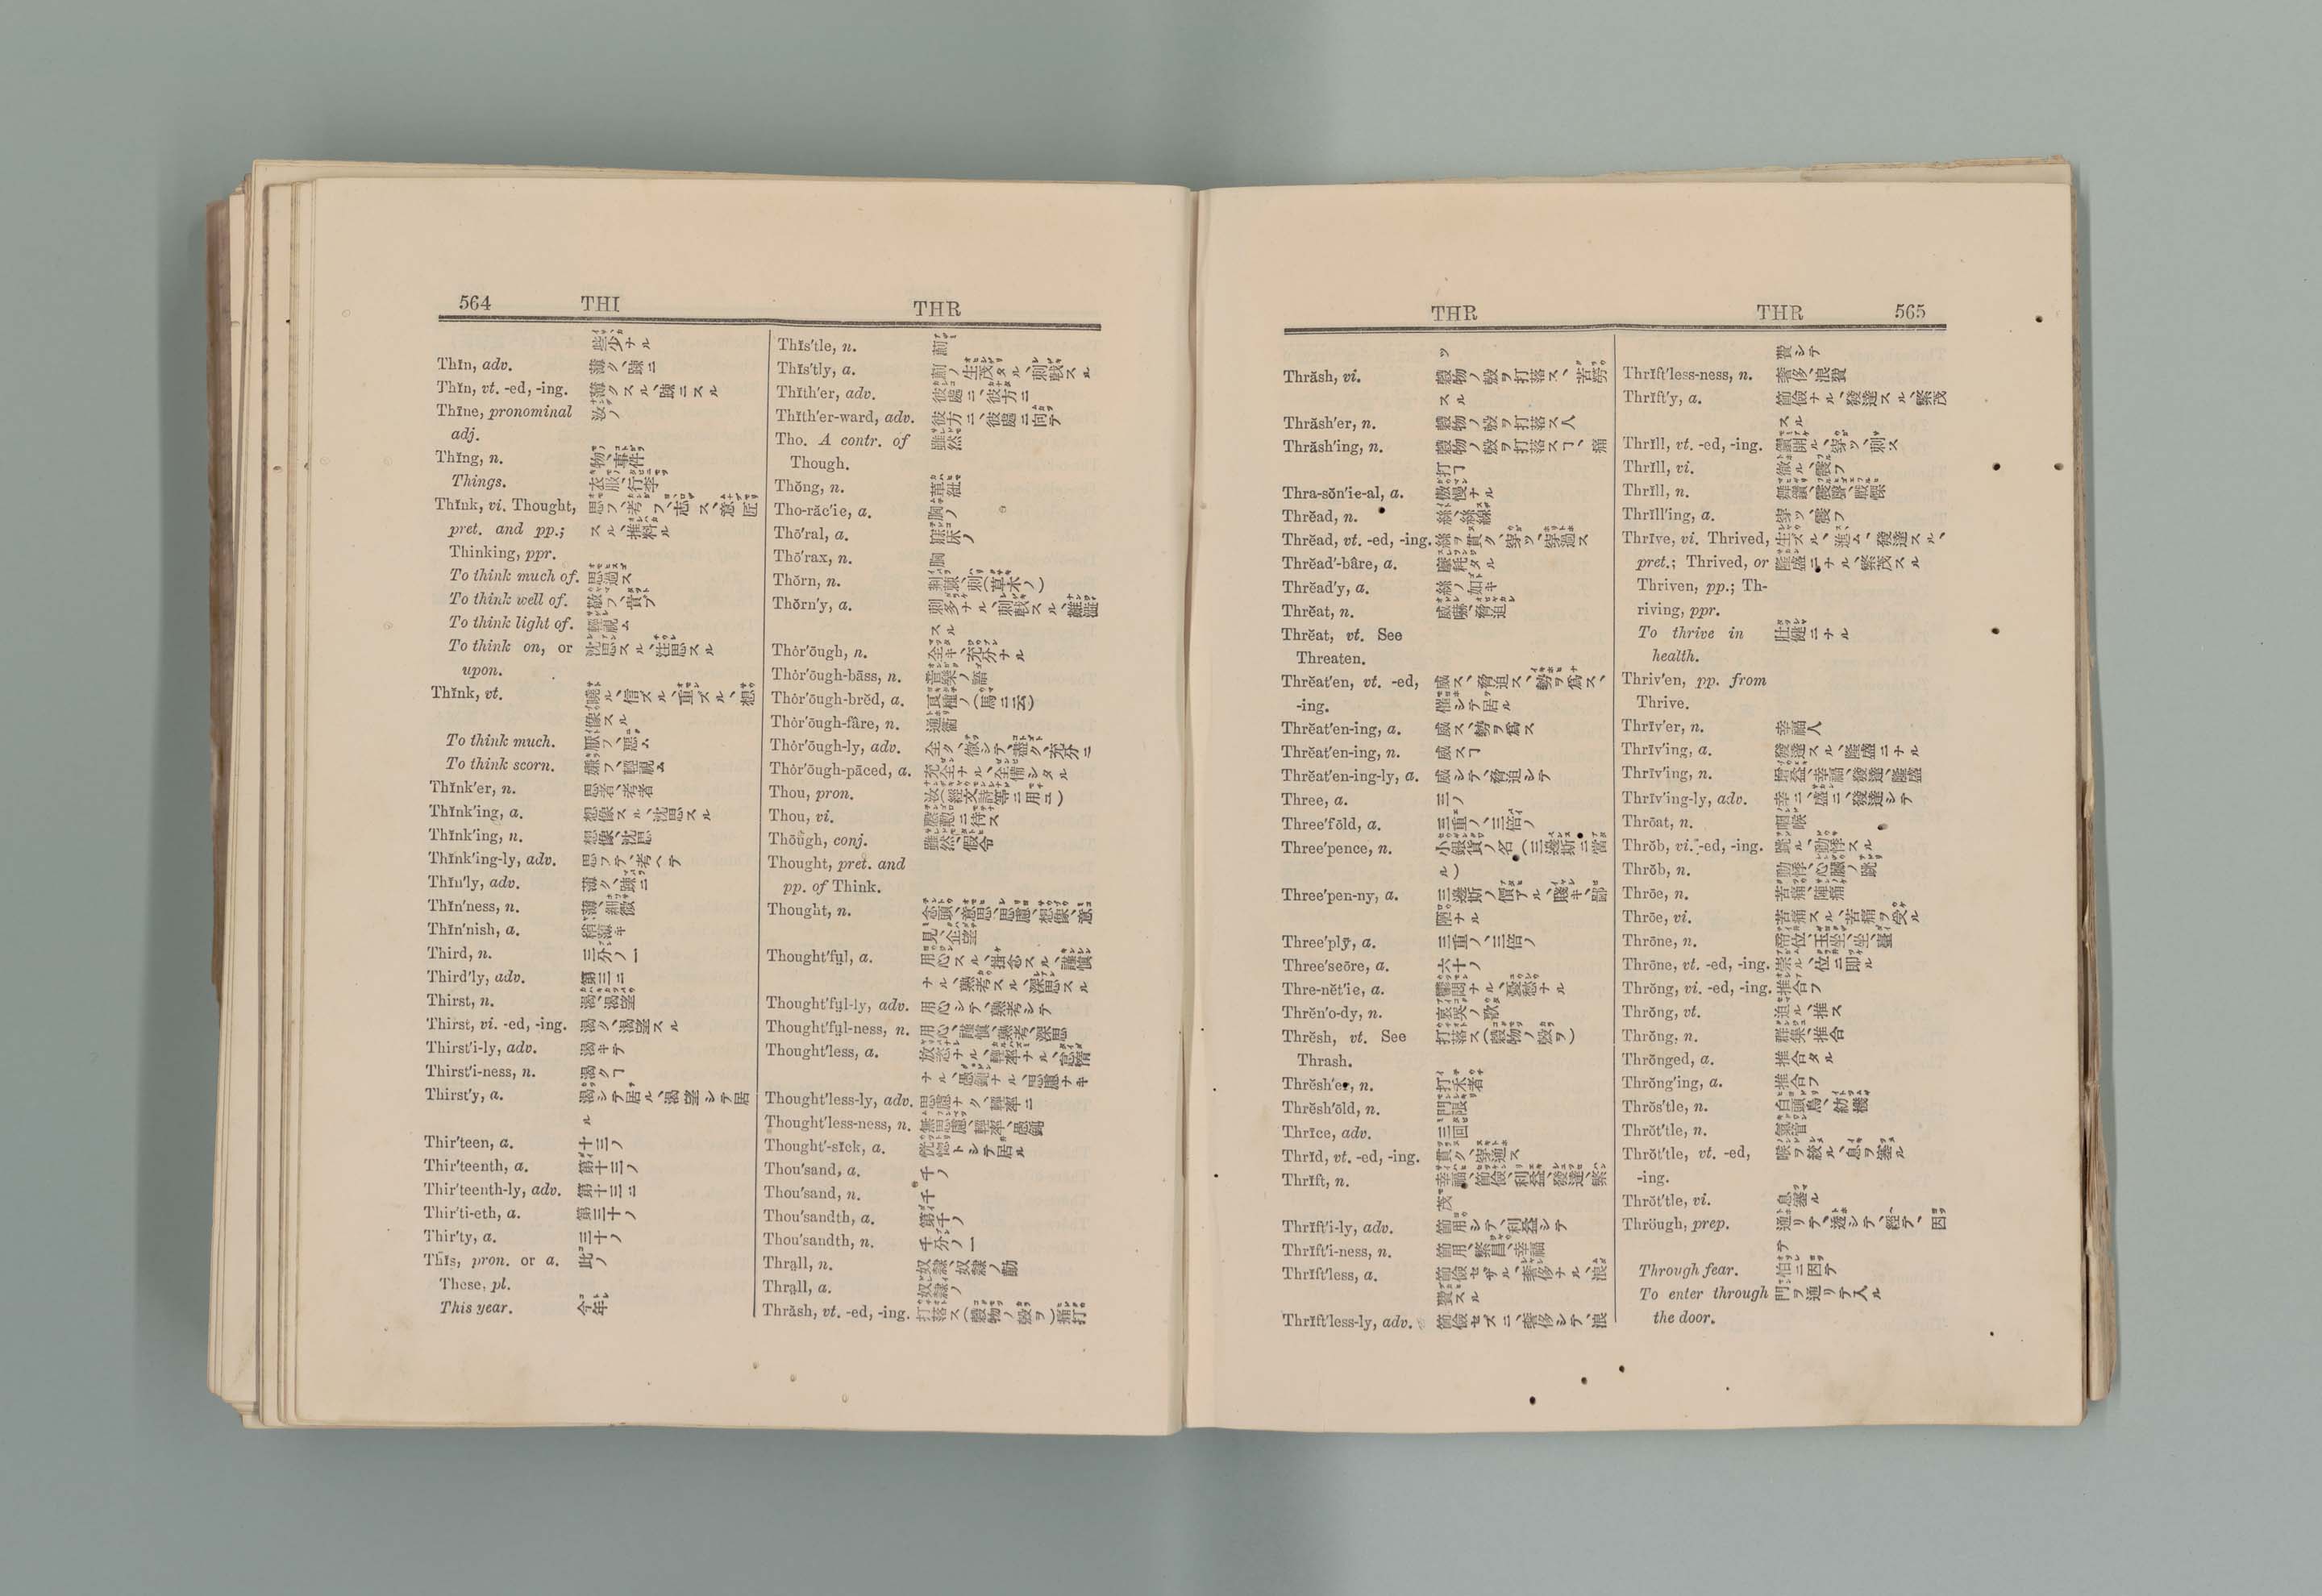 564 THI THR
些少ナル
Thĭn, adv. 薄ク、疎ニ
Thĭn, vt. -ed, -ing. 薄クスル、疎ニスル
Thīne, pronominal 汝ノ
adj.
Thĭng, n. 物、事件
Things. 衣服、行李
Thĭnk, vi. Thought, 思フ、考フ、志ス、意匠
pret. and pp.; スル、推料ル
Thinking, ppr.
To think much of. 思過ス
To think well of. 敬フ、貴ブ
To think light of. 輕視ム
To think on, or 沈思スル、注思スル
upon.
Thĭnk, vt. 曉ル、信ズル、重ズル、想
像スル
To think much. 厭フ、惡ム
To think scorn. 嫌フ、輕視ム
Thĭnk'er, n. 思者、考者
Thĭnk'ing, a. 想像スル、沈思スル
Thĭnk'ing, n. 想像、沈思
Thĭnk'ing-ly, adv. 思フテ、考ヘテ
Thĭn'ly, adv. 薄ク、疎ニ
Thĭn'ness, n. 薄、細微
Thĭn'nish, a. 稍薄キ
Third, n. 三分ノ一
Third'ly, adv. 第三ニ
Thirst, n. 渴、渴望
Thirst, vi. -ed, -ing. 渴ク、渴望スル
Thirst'i-ly, adv. 渴キテ
Thirst'i-ness, n. 渴クヿ
Thirst'y, a. 渴シテ居ル、渴望シテ居
ル
Thir'teen, a. 十三ノ
Thir'teenth, a. 第十三ノ
Thir'teenth-ly, adv. 第十三ニ
Thir'ti-eth, a. 第三十ノ
Thir'ty, a. 三十ノ
Thĭs, pron. or a. 此ノ
These, pl.
This year. 今年
Thĭs'tle, n. 薊
Thĭs'tly, a. 薊ノ生茂タル、刺戟スル
Thĭth'er, adv. 彼處ニ、彼方ニ
Thĭth'er-ward, adv. 彼方ニ、彼處ニ向テ
Tho. A contr. of 雖然
Though.
Thŏng, n. 革紐
Tho-răc'ie, a. 胸ノ
Thō'ral, a. 寢床ノ
Thō'rax, n. 胸
Thŏrn, n. 荆棘、刺(草木ノ)
Thŏrn'y, a. 刺多ナル、刺戟スル、難澁
スル
Thȯr'ōugh, n. 全キ、充分ナル
Thȯr'ōugh-bāss, n. 音樂ノ語
Thȯr'ōugh-brĕd, a. 良種ノ(馬ニ云)
Thȯr'ōugh-fâre, n. 通衢
Thȯr'ōugh-ly, adv. 全ク、徹シテ、盡ク、充分ニ
Thȯr'ōugh-pāced, a. 充全ナル、全備シタル
Thou, pron. 汝(經文詩等ニ用ユ)
Thou, vi. 慇懃ニ待ス
Thōugh, conj. 雖然、假令
Thought, pret. and
pp. of Think.
Thought, n. 念頭、意思、思慮、想像、意
見、企望
Thought'fụl, a. 用心スル、掛念スル、謹愼
ナル、熟考スル、深思スル
Thought'fụl-ly, adv. 用心シテ、熟考シテ
Thought'fụl-ness, n. 用心、謹愼、熟考、深思
Thought'less, a. 放恣ナル、輕率ナル、怠惰
ナル、愚鈍ナル、思慮ナキ
Thought'less-ly, adv. 思慮ナク、輕率ニ
Thought'less-ness, n. 無思慮、輕率、愚鈍
Thought'-sĭck, a. 恍惚トシテ居ル
Thou'sand, a. 千ノ
Thou'sand, n. 千
Thou'sandth, a. 第千ノ
Thou'sandth, n. 千分ノ一
Thrạll, n. 奴隷、奴隷ノ勤
Thrạll, a. 奴隷ノ
Thrăsh, vt. -ed, -ing. 打落ス(穀物ノ殼ヲ)痛打
THR THR 565
ツ
Thrăsh, vi. 穀物ノ殼ヲ打落ス、苦勞
スル
Thrăsh'er, n. 穀物ノ殼ヲ打落ス人
Thrăsh'ing, n. 穀物ノ殼ヲ打落スヿ、痛
打ヿ
Thra-sŏn'ie-al, a. 傲慢ナル
Thrĕad, n. 絲、絲線
Thrĕad, vt. -ed, -ing. 絲ヲ貫ク、穿ツ、穿過ス
Thrĕad'-bâre, a. 磨耗タル
Thrĕad'y, a. 絲ノ如キ
Thrĕat, n. 威嚇、脅迫
Thrĕat, vt. See
Threaten.
Thrĕat'en, vt. -ed, 威ス、脅迫ス、勢ヲ爲ス、
-ing. 催シテ居ル
Thrĕat'en-ing, a. 威ス、勢ヲ爲ス
Thrĕat'en-ing, n. 威スヿ
Thrĕat'en-ing-ly, a. 威シテ、脅迫シテ
Three, a. 三ノ
Three'fōld, a. 三重ノ、三倍ノ
Three'pence, n. 小銀貨ノ名(三邊斯ニ當
ル)
Three'pen-ny, a. 三邊斯ノ價アル、賤キ、鄙
陋ナル
Three'plȳ, a. 三重ノ、三倍ノ
Three'seōre, a. 六十ノ
Thre-nĕt'ie, a. 鬱悶ナル、憂愁ナル
Thrĕn'o-dy, n. 哀哭ノ歌
Thrĕsh, vt. See 打落ス(穀物ノ殼ヲ)
Thrash.
Thrĕsh'er, n. 打禾者
Thrĕsh'ōld, n. 門限
Thrīce, adv. 三回
Thrĭd, vt. -ed, -ing. 貫ク、穿通ス
Thrĭft, n. 幸福、節儉、利益、發達、繁
茂
Thrĭft'i-ly, adv. 節用シテ、利益シテ
Thrĭft'i-ness, n. 節用、繁昌、幸福
Thrĭft'less, a. 節儉セザル、奢侈ナル、浪
費スル
Thrĭft'less-ly, adv. 節儉セズニ、奢侈シテ、浪
費シテ
Thrĭft'less-ness, n. 奢侈、浪費
Thrĭft'y, a. 節儉ナル、發達スル、繁茂
スル
Thrĭll, vt. -ed, -ing. 鑽開ル、穿ツ、刺ス
Thrĭll, vi. 徹ル、震フ
Thrĭll, n. 舞鑽、震聲、戰慄
Thrĭll'ing, a. 穿ツ、震フ
Thrīve, vi. Thrived, 生ズル、進ム、發達スル、
pret.; Thrived, or 隆盛ニナル、繁茂スル
Thriven, pp.; Th-
riving, ppr.
To thrive in 壯健ニナル
health.
Thriv'en, pp. from
Thrive.
Thrīv'er, n. 幸福人
Thrīv'ing, a. 發達スル、隆盛ニナル
Thrīv'ing, n. 增益、幸福、發達、隆盛
Thrīv'ing-ly, adv. 幸ニ、盛ニ、發達シテ
Thrōat, n. 咽喉
Thrŏb, vi. -ed, -ing. 跳ル、動悸スル
Thrŏb, n. 動悸、心臟ノ跳
Thrōe, n. 苦痛、陣痛
Thrōe, vi. 苦痛スル、苦痛ヲ受ル
Thrōne, n. 帝位、玉坐、坐、蜜
Thrōne, vt. -ed, -ing. 崇ル、位ニ即ル
Thrŏng, vi. -ed, -ing. 推合フ
Thrŏng, vt. 迫ル、推ス
Thrŏng, n. 群集、推合
Thrŏnged, a. 推合タル
Thrŏng'ing, a. 推合フ
Thrŏs'tle, n. 白頭鳥、紡機
Thrŏt'tle, n. 氣管
Thrŏt'tle, vt. -ed, 喉ヲ絞ル、息ヲ塞ル
-ing.
Thrŏt'tle, vi. 息塞ル
Thrōugh, prep. 通リテ、透シテ、經テ、因
テ
Through fear. 怕ニ因テ
To enter through 門ヲ通リテ入ル
the door.